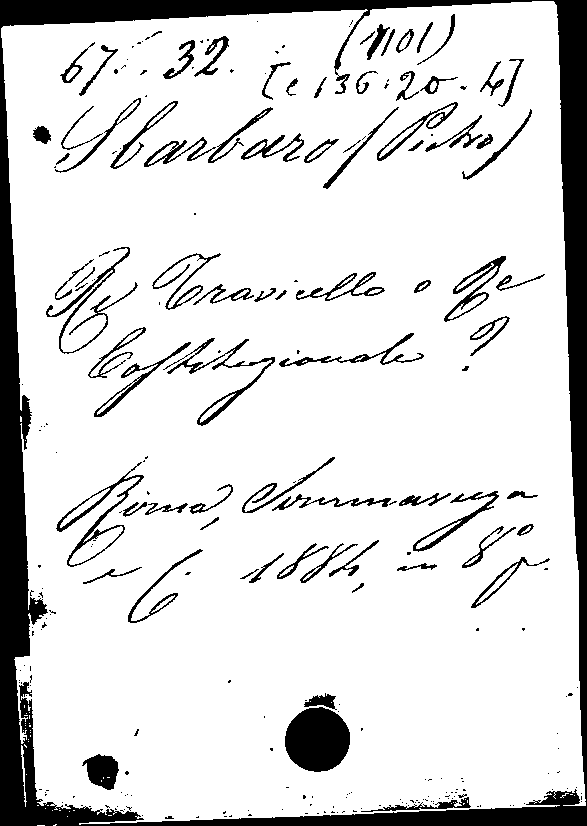 67. . 32. (1101)
[e 136. 20. 4]
Sbarbaro (Pietro)
Re Travicello o Re
Costituzionale ?
Roma, Sommaruga
e C. 1884, in 8º p.